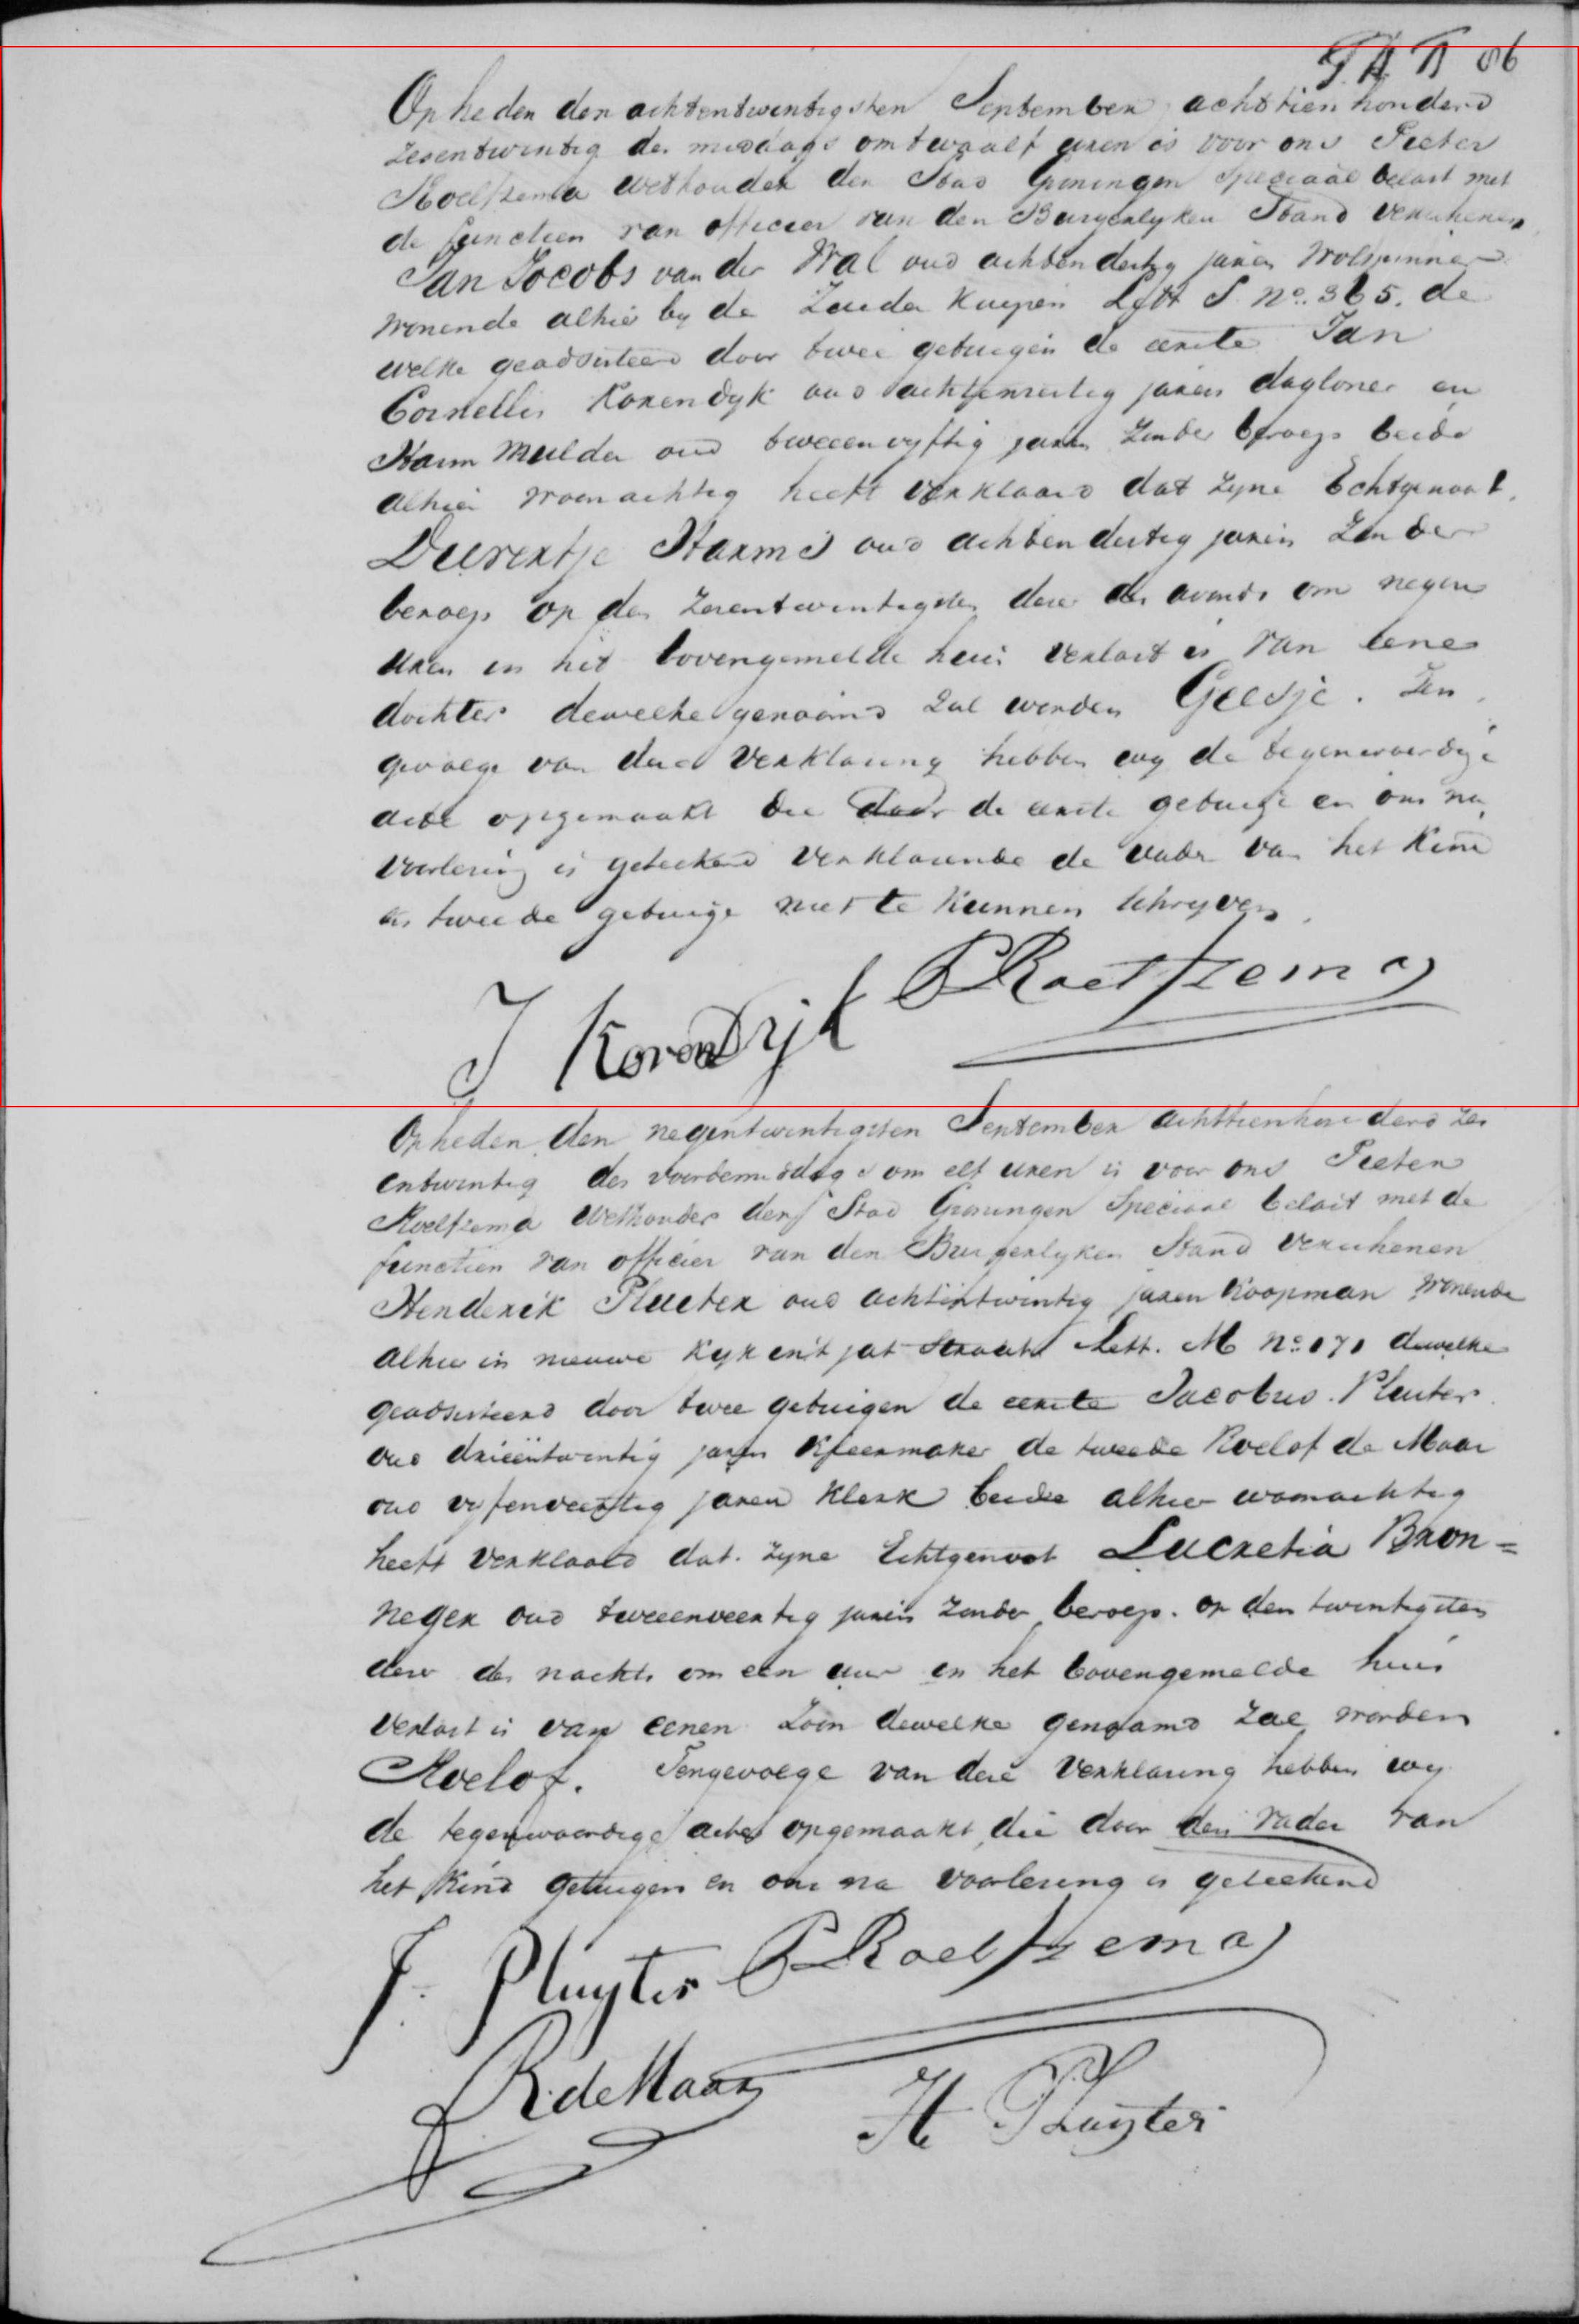 Op heden den achtentwintigsten September achttienhonderd
zesentwintig des middags om twaalf uren is voor ons Pieter
Roelfzema Wethouder der Stad Groningen Speciaal belast met
de functien van officier van den Burgerlyken Stand verschenen
Jan Jocobs van der Wal oud achtendertig jaren Wolspinner
wonende alhier by de Zuider Kuypen Lett S. No. 365. de
welke geadsisteerd door twee getuigen de eerste Jan
Cornellis Korendyk oud jaren dagloner en
Harm Mulder oud tweeenvyftig jaren zonder beroep beide
alhier woonachtig heeft verklaard dat zyne Echtgenoot
Deurertje Harms oud achtendertig jaren zonder
beroep op den zesentwintigsten dezer des avonds om negen
uren in het bovengemelde huis verlost is van eene
dochter dewelke genaamd zal worden Geesje. Ten
gevolge van deze verklaring hebben wy de tegenwoordige
acte opgemaakt die door de eerste getuige en ons na
voorlezing is geteekend verklarende de vader van het kind
en tweede getuige niet te kunnen schryven.
P Roelfzema
J Korendijk
Op heden den negentwintigsten September achttienhonderd zes
entwintig des voordemiddags om elf uren is voor ons Pieter
Roelfzema Wethouder der Stad Groningen Speciaal belast met de
functien van officier van den Burgerlyken Stand verschenen
Henderik Pluiter oud achtentwintig jaren Koopman wonende
alhier in nieuwe Kyk en't jat Straat Lett. M No 171 dewelke
geadsisteerd door twee getuigen de eerste Jacobus Pluiter
oud drieëntwintig jaren Kleermaker de tweede Roelof de Maar
oud vyfenveertig jaren Klerk beide alhier woonachtig
heeft verklaard dat zyne Echtgenoot Lucretia Bron=
neger oud tweeenveertig jaren zonder beroep op den twintigsten
dezer des nachts om een uur in het bovengemelde huis
verlost is van eenen Zoon dewelke genaamd zal worden
Roelof. Tengevolge van deze verklaring hebben wy
de tegenwoordige acte opgemaakt die door den vader van
het kind getuigen en ons na voorlezing is geteekend
J. Pluyter P Roelfzema
R. de Maar
H Pluyter